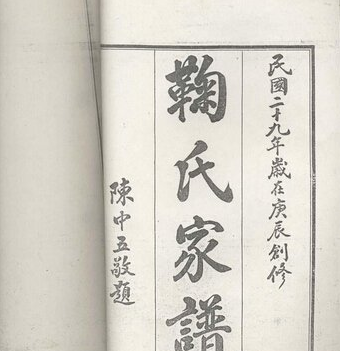 民國二十九年歲在庚辰創修
鞠氏家譜
陳中五敬題